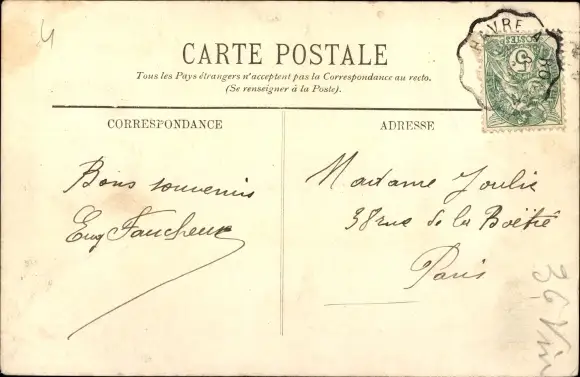 4
CARTE POSTALE
Tous les Pays étrangers n'acceptent pas la Correspondance au recto.
(Se renseigner à la Poste).
CORRESPONDANCE
ADRESSE
HAVRE A
POSTES
5
Bons souvenirs
Eug Faucheux
Madame Joulie
38 rue de la Boëtie
Paris
36